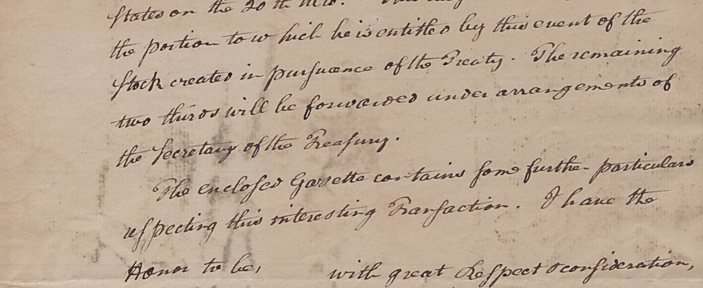 States on the 20th
the portion to which he is entitled by this event of the
Stock created in pursuance of the Treaty. The remaining
two thirds will be forwarded under arrangements of
the Secretary of the Treasury.
The enclosed Gazette contains some further particulars
respecting this interesting Transaction. I have the
Honor to be, with great Respect & consideration,